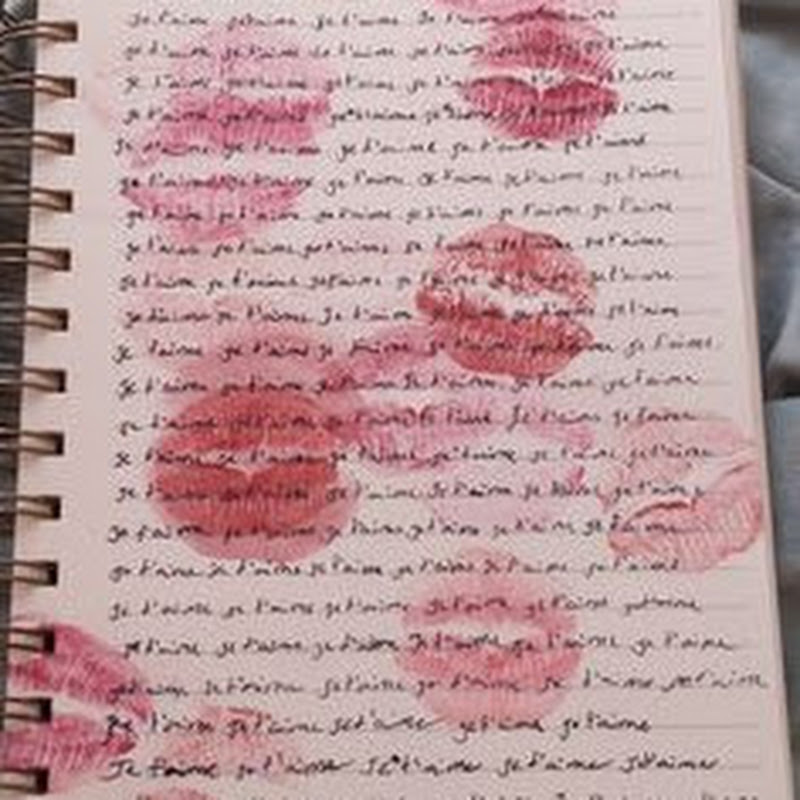 je t'aime je t'aime Je t'aime je t'aime
je t'aime je t'aime je t'aime je t'aime je t'aime
je t'aime je t'aime je t'aime je t'aime je t'aime
je t'aime je t'aime je t'aime je t'aime
Je t'aime je t'aime je t'aime je t'aime je t'aime
je t'aime je t'aime je t'aime je t'aime je t'aime je t'aime
je t'aime je t'aime je t'aime je t'aime je t'aime je t'aime
je t'aime je t'aime je t'aime je t'aime je t'aime je t'aime
je t'aime je t'aime je t'aime je t'aime je t'aime je t'aime
je t'aime je t'aime Je t'aime je t'aime je t'aime
je t'aime je t'aime je t'aime je t'aime je t'aime je t'aime
je t'aime je t'aime je t'aime Je t'aime je t'aime je t'aime
je t'aime je t'aime je t'aime je t'aime Je t'aime je t'aime
je t'aime je t'aime je t'aime je t'aime je t'aime
je t'aime je t'aime je t'aime Je t'aime je t'aime je
Je t'aime je t'aime je t'aime je t'aime je t'aime je t'aime
je t'aime je t'aime je t'aime je t'aime Je t'aime je t'aime
je t'aime je t'aime je t'aime Je t'aime je t'aime je t'aime
je t'aime je t'aime je t'aime Je t'aime je t'aime je t'aime
je t'aime je t'aime je t'aime je t'aime je t'aime je t'aime
Je t'aime je t'aime Je t'aime je t'aime je t'aime
Je t'aime je t'aime Je t'aime je t'aime Je t'aime